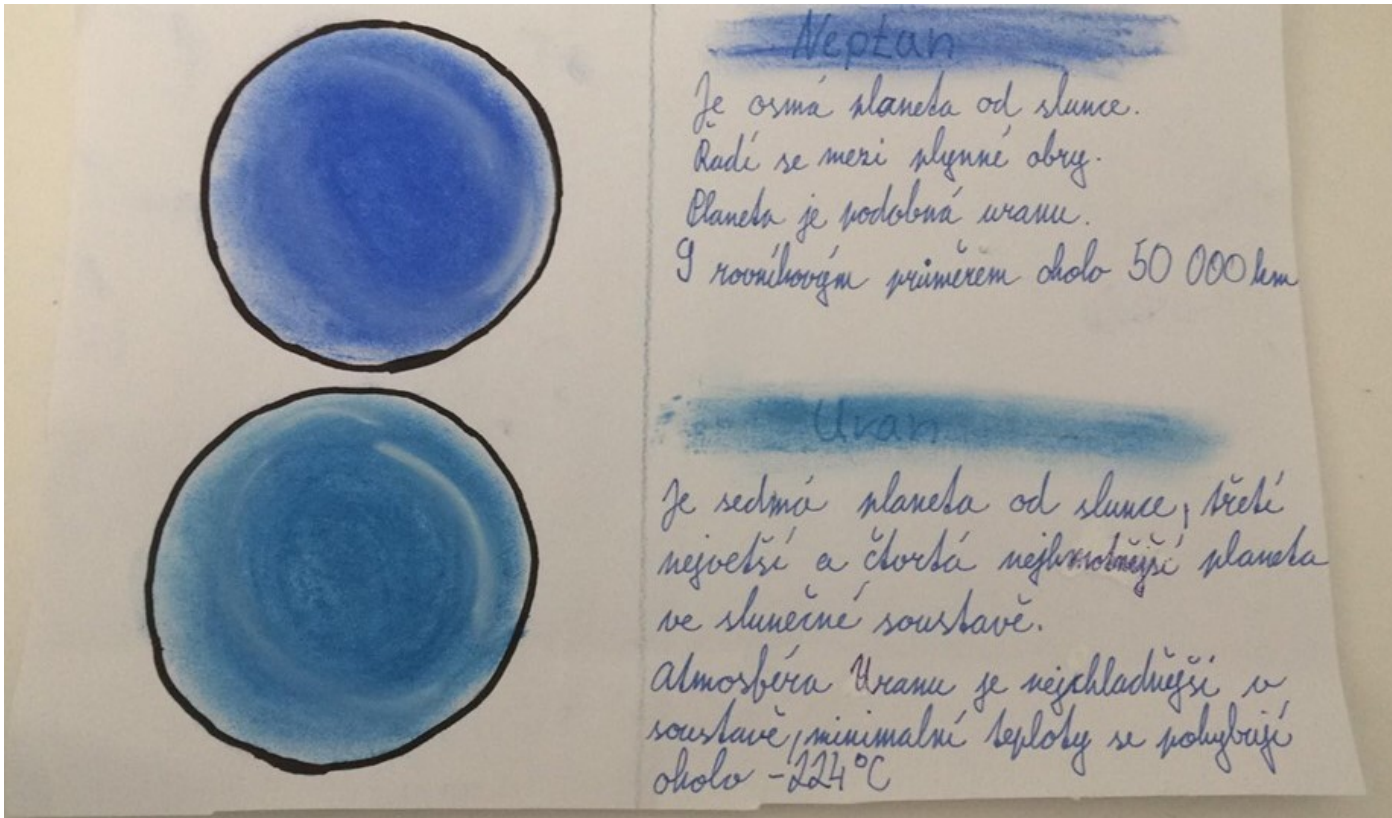 Neptun
Je osmá planeta od slunce.
Řadí se mezi plynné obry.
Planeta je podobná uranu.
S rovníkovým průměrem okolo 50 000 km
Uran
Je sedmá planeta od slunce, třetí
největší a čtvrtá nejhmotnější planeta
ve sluneční soustavě.
Atmosféra Uranu je nejchladnější v
soustavě, minimalní teploty se pohybují
okolo -224°C